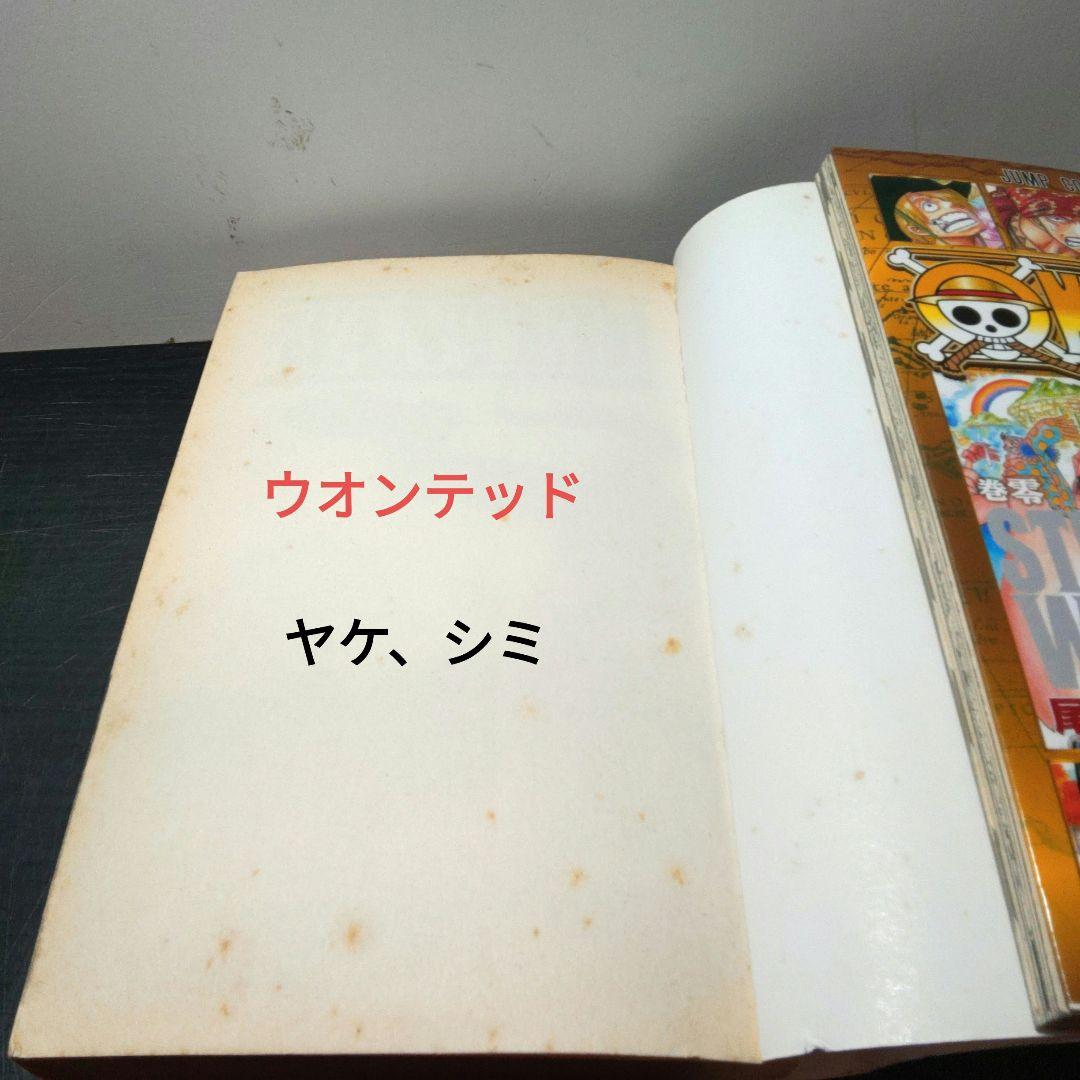 ウオンテッド
ヤケ、シミ
JUMP
巻零